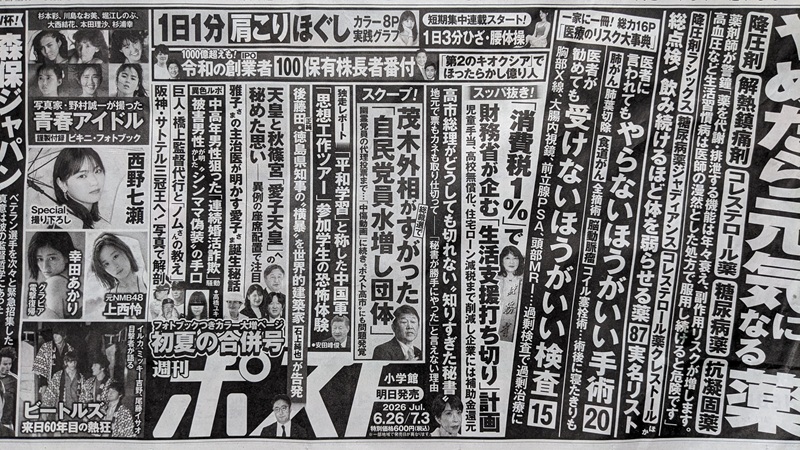 やめたら元気になる薬
薬剤師が警鐘「薬を代謝・排泄する機能は年々衰え、副作用リスクが増します。
高血圧など生活習慣病は医師の漫然とした処方で服用し続けると危険です」
降圧剤
解熱鎮痛剤
コレステロール薬
糖尿病薬
抗凝固薬
降圧剤ブランド
糖尿病薬ジャディアンス
コレステロール薬クレストールほか
総点検!飲み続けるほど体を弱らせる薬87実名リスト
一家に一冊!総力16P
医療のリスク大事典
医者に言われてもやらないほうがいい手術20
肺がん肺葉切除
食道がん全摘術
脳動脈瘤コイル塞栓術…術後に寝たきりも
医者が勧めても受けないほうがいい検査15
胸部X線、大腸内視鏡、前立腺PSA、頭部MRI…過剰検査で過剰治療に
短期集中連載スタート!
1日3分ひざ・腰体操
1日1分肩こりほぐし
カラー8P
実践グラフ
1000億超えも!IPO
令和の創業者100保有株長者番付
「第2のキオクシア」で
ほったらかし億り人
スッパ抜き!
消費税1%で
財務省が企む「生活支援打ち切り」計画
児童手当、高校無償化、住宅ローン減税まで削減し企業には補助金還元
高市総理がどうしても切れない"知りすぎた秘書"
地元で票もカネも取り仕切って――「秘書が勝手にやった」と言えない理由
スクープ!
茂木外相がすがった
総裁選で
「自民党員水増し団体」
独走レポート
「平和学習」と称した中国軍
「思想工作ツアー」参加学生の恐怖体験
安田峰俊
後藤田・徳島県知事の"横暴"を世界的建築家
石上純也
が告発
天皇と秋篠宮「愛子天皇」への
秘めた思い――異例の座席配置で注目
雅子さまの主治医が明かす愛子さま誕生秘話
異色ルポ
中高年男性狙った「連続婚活詐欺」騒動
被害男性が明かすシンママ偽装の手口
巨人・橋上監督代行と「ノムさんの教え」
阪神・サトテル三冠王へ!写真で解剖
フォトブックつきカラー大増ページ
初夏の合併号
週刊ポスト
小学館
明日発売
2026 Jul.
6.26/7.3
特別価格600円(税込)
杉本彩、川島なお美、堀江しのぶ、
大西結花、本田理沙、杉浦幸
写真家・野村誠一が撮った
青春アイドル
ビキニ・フォトブック
西野七瀬
Special
撮り下ろし
幸田あかり
グラビア
電撃復帰
元NMB48
上西怜
イルカ、ミッキー吉野、尾藤イサオ
目撃者が語る
ビートルズ
来日60年目の熱狂
森保ジャパン
ベテラン選手を次々と緊急招集した